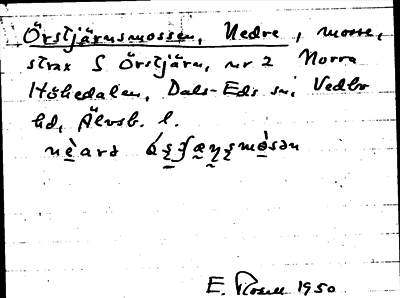 Örstjärnsmossen, Nedre, mosse,
strax S Örstjärn, nr 2 Norra
Höhedalen, Dals-Eds sn, Vedbo
hd, Älvsb. l.
E. Rosell 1950